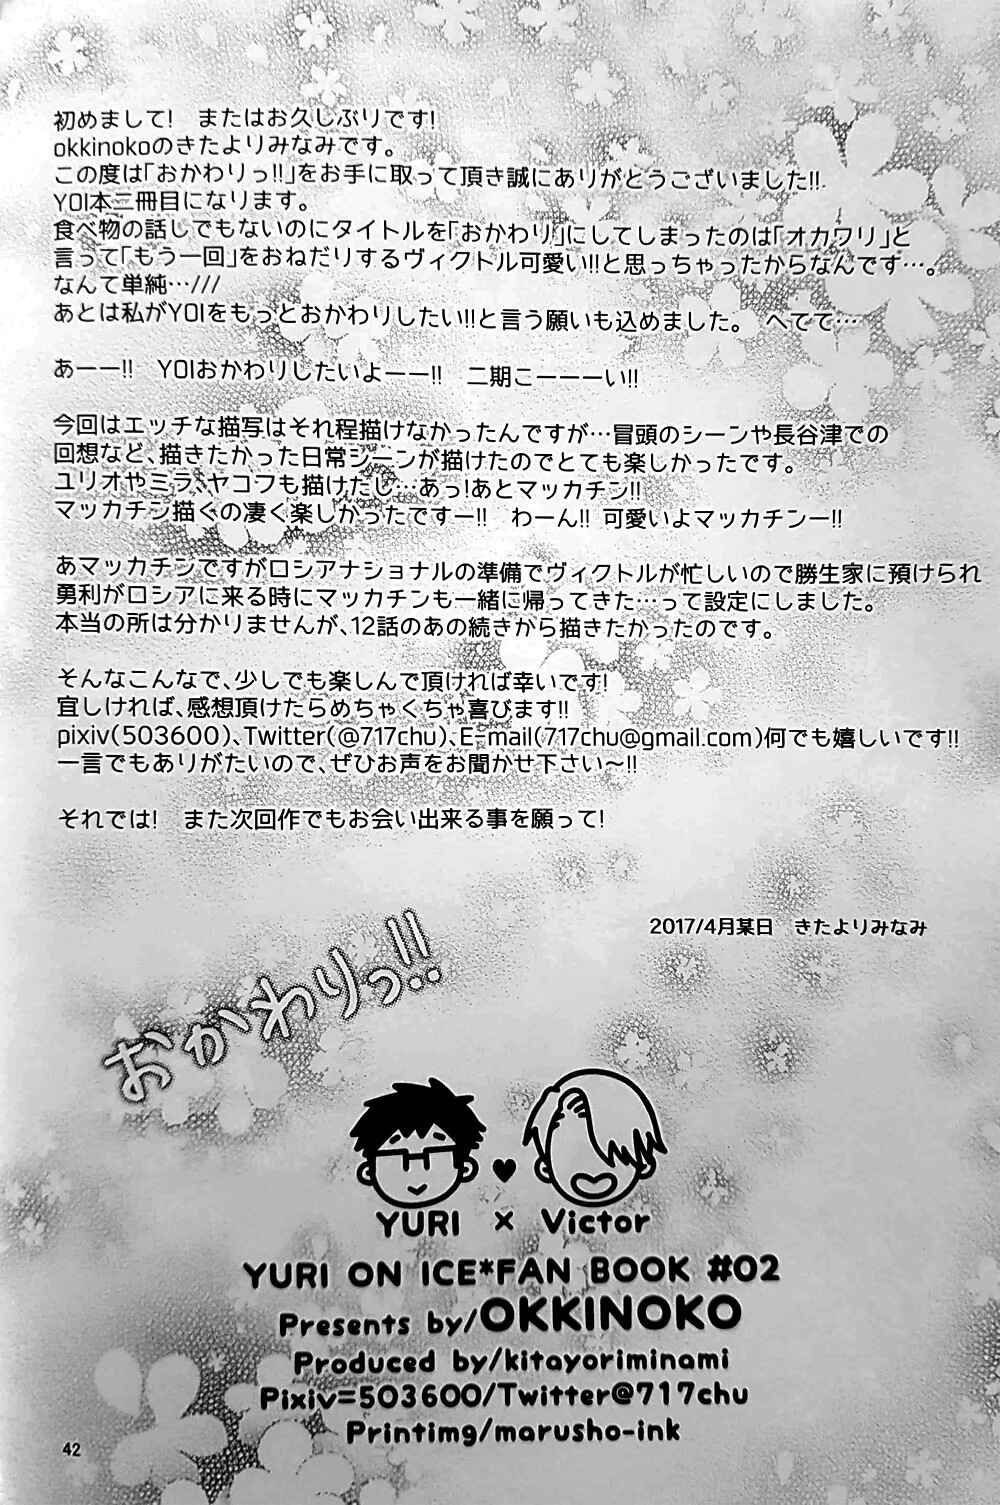 初めまして!　またはお久しぶりです!
okkinokoのきたよりみなみです。
この度は「おかわりっ!!」をお手に取って頂き誠にありがとうございました!!
YOI本二冊目になります。
食べ物の話しでもないのにタイトルを「おかわり」にしてしまったのは「オカワリ」と
言って「もう一回」をおねだりするヴィクトル可愛い!!と思っちゃったからなんです…。
なんて単純…///
あとは私がYOIをもっとおかわりしたい!!と言う願いも込めました。　へてて…
あーー!!　YOIおかわりしたいよーー!!　二期こーーーい!!
今回はエッチな描写はそれ程描けなかったんですが…冒頭のシーンや長谷津での
回想など、描きたかった日常シーンが描けたのでとても楽しかったです。
ユリオやミラ、ヤコフも描けたし…あっ!あとマッカチン!!
マッカチン描くの凄く楽しかったですー!!　わーん!! 可愛いよマッカチンー!!
あマッカチンですがロシアナショナルの準備でヴィクトルが忙しいので勝生家に預けられ
勇利がロシアに来る時にマッカチンも一緒に帰ってきた…って設定にしました。
本当の所は分かりませんが、12話のあの続きから描きたかったのです。
そんなこんなで、少しでも楽しんで頂ければ幸いです!
宜しければ、感想頂けたらめちゃくちゃ喜びます!!
pixiv(503600)、Twitter(@717chu)、E-mail(717chu@gmail.com)何でも嬉しいです!!
一言でもありがたいので、ぜひお声をお聞かせ下さい〜!!
それでは!　また次回作でもお会い出来る事を願って!
2017/4月某日　きたよりみなみ
おかわりっ!!
YURI × Victor
YURI ON ICE*FAN BOOK #02
Presents by/OKKINOKO
Produced by/kitayoriminami
Pixiv=503600/Twitter@717chu
Printimg/marusho-ink
42